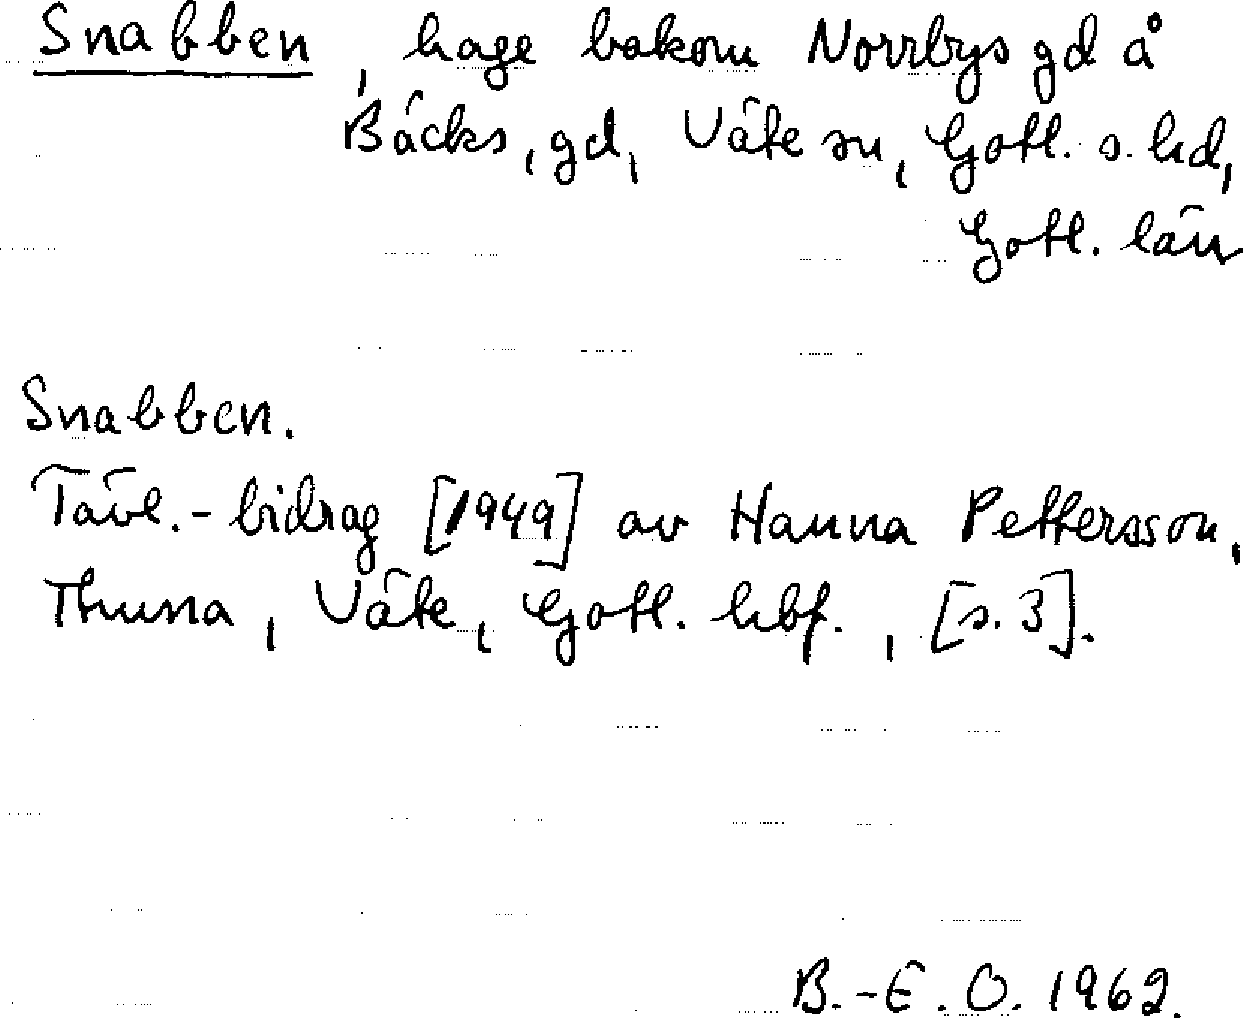 Snabben, hage bakom Norrbys gd å
Bäcks, gd, Väte sn, Gotl. s. hd,
Gotl. län
Snabben.
Tävl.-bidrag [1949] av Hanna Pettersson,
Thuna, Väte, Gotl. hbf., [s. 3].
B.-E. O. 1962.